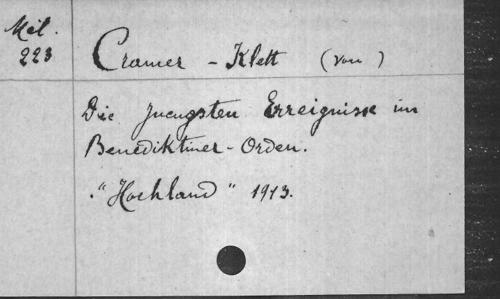 Mél.
223
Cramer - Klett (von)
Die Juengsten Erreignisse im
Benediktiner-Orden.
"Hochland" 1913.